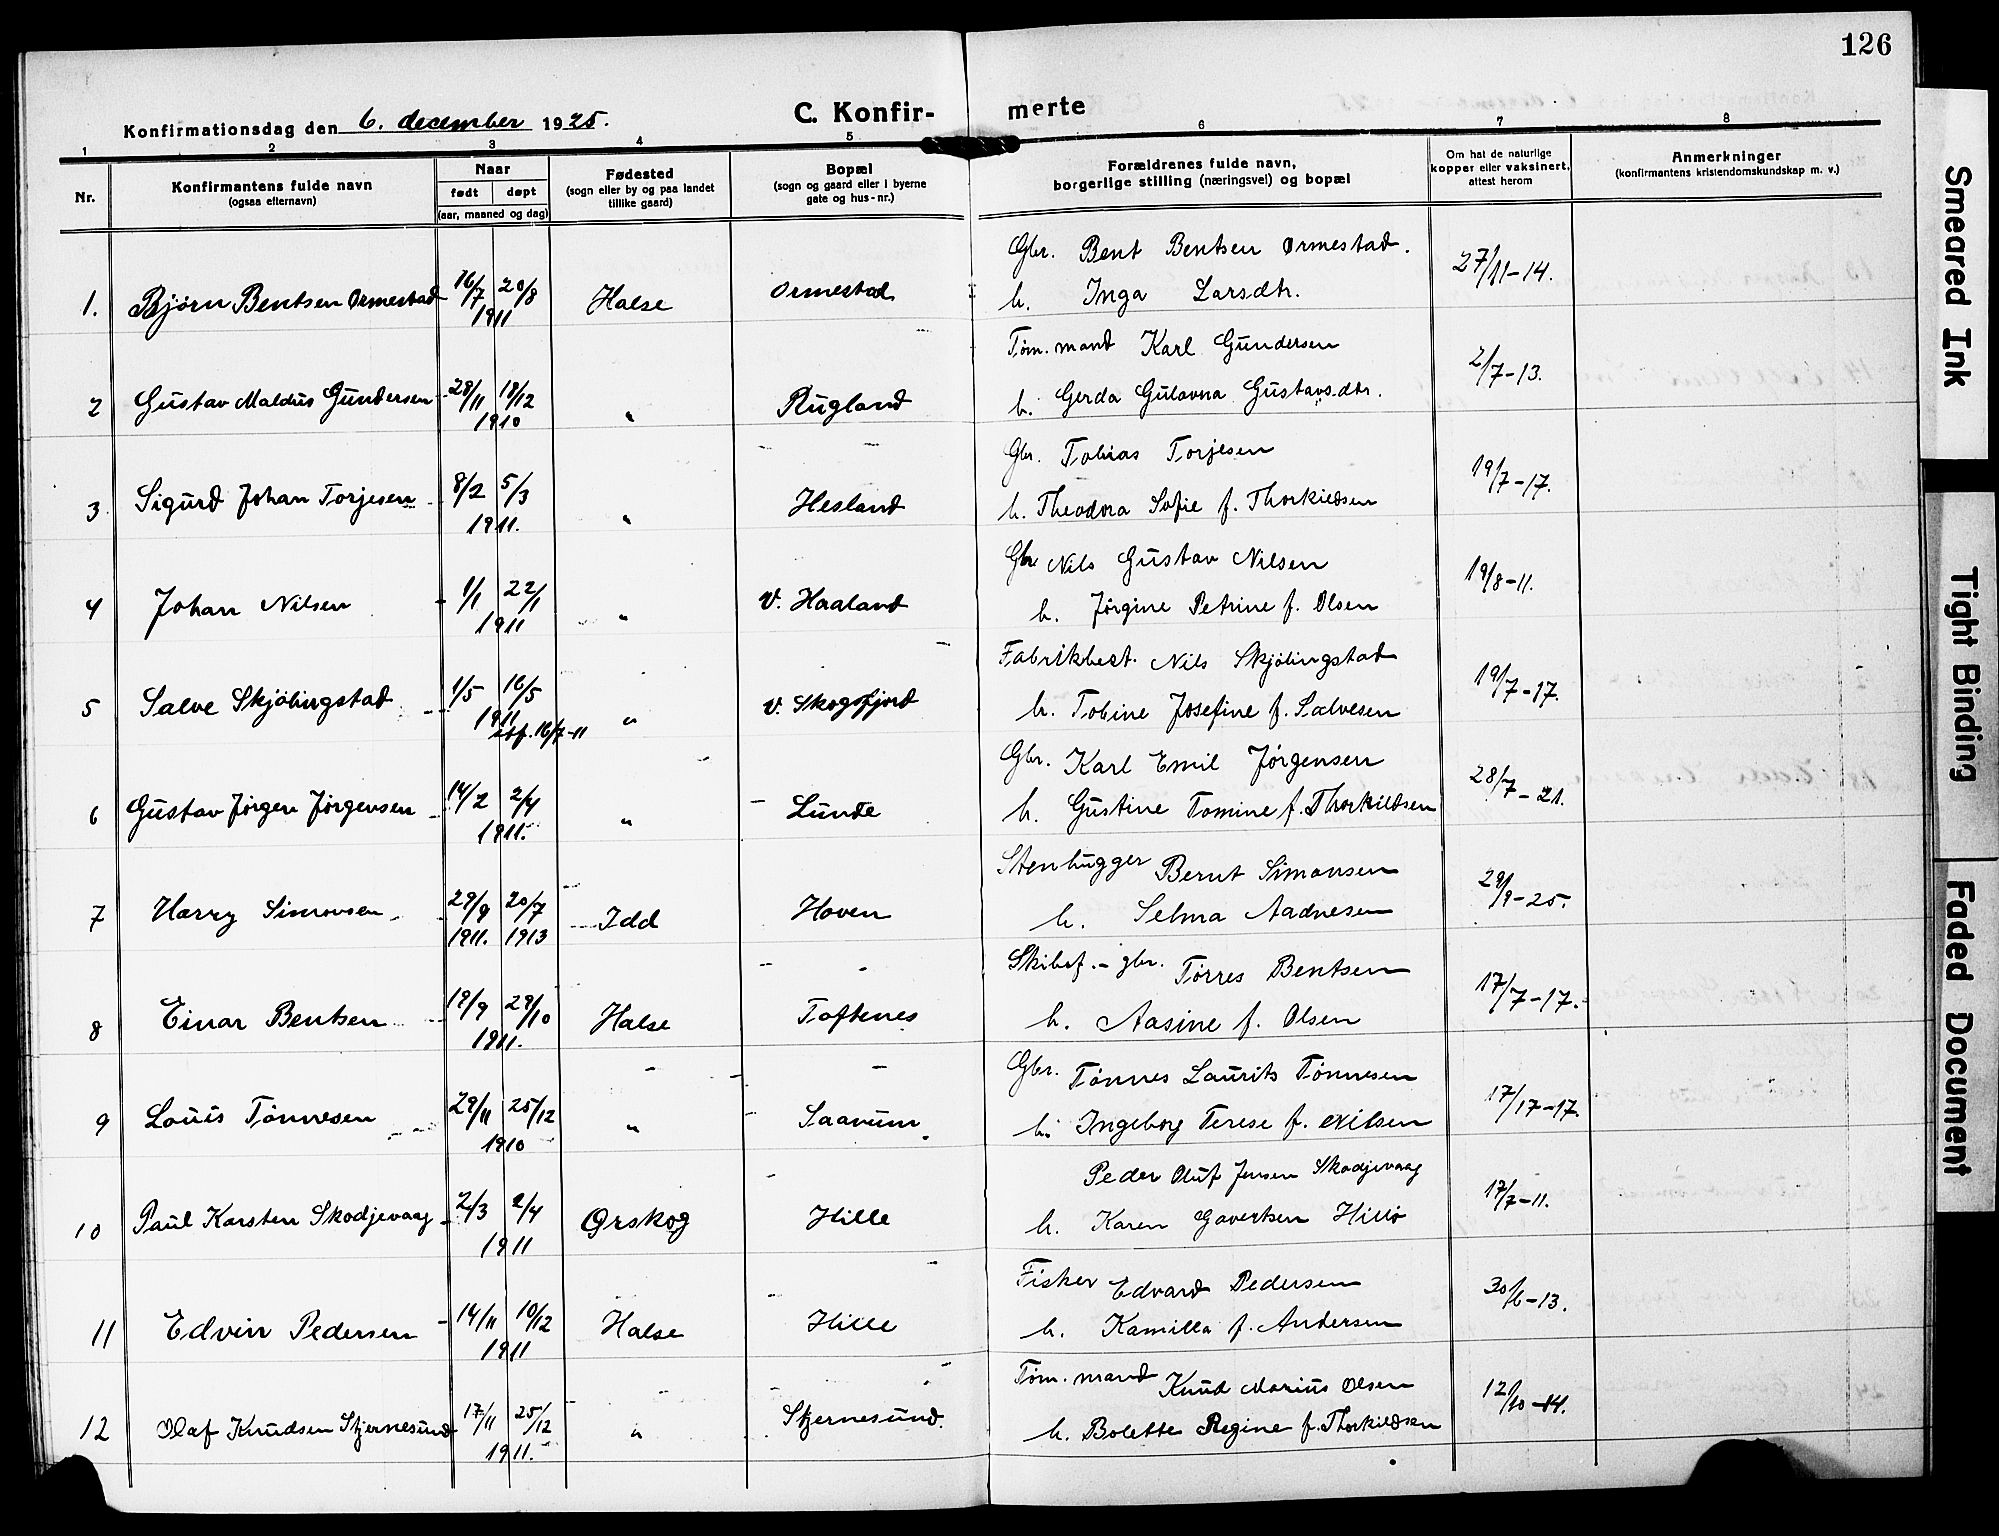 126
Konfirmationsdag den 6. december 1925.
C. Konfir- merte
1 2 3 4 5 6 7 8
Nr.
Konfirmantens fulde navn
(ogsaa efternavn)
Naar
født døpt
(aar, maaned og dag)
Fødested
(sogn eller by og paa landet
tillike gaard)
Bopæl
(sogn og gaard eller i byerne
gate og hus-nr.)
Forældrenes fulde navn,
borgerlige stilling (næringsvei) og bopæl
Om hat de naturlige
kopper eller vaksinert,
attest herom
Anmerkninger
(konfirmantens kristendomskundskap m. v.)
Gbr. Bent Bentsen Ormestad.
1. Bjørn Bentsen Ormestad 16/7 20/8 Halse Ormestad h. Inga Larsdtr. 27/11-14.
1911
Tøm.mand Karl Gundersen
2 Gustav Maldus Gundersen 28/11 18/12 " Rugland h. Gerda Gulovna Gustavs.dtr. 2/7-13.
1910
Gbr. Tobias Torjesen
3 Sigurd Johan Torjesen 8/2 5/3 " Hesland h. Theodora Sofie f. Thorkildsen 19/7-17.
1911.
Gbr Nils Gustav Nilsen
4 Johan Nilsen 1/1 22/1 " V. Haaland h. Jørgine Petrine f. Olsen 19/8-11.
1911
Fabrikbest. Nils Skjölingstad
5 Salve Skjölingstad 1/5 16/5 " V. Skogsfjord h. Tobine Josefine f. Salvesen 19/7-17.
1911
stf. 16/7-11
Gbr. Karl Emil Jørgensen
6 Gustav Jørgen Jørgensen 14/2 2/4 " Lunde h. Gustine Tomine f. Thorkildsen 28/7-21.
1911.
Stenhugger Bernt Simonsen
7 Harry Simonsen 29/9 20/7 Idd Hoven h. Selma Aadnesen 29/9-25.
1911. 1913
Skibsf. - gbr. Tørres Bentsen
8 Einar Bentsen 19/9 29/10 Halse Toftenes h. Aasine f. Olsen 17/7-17.
1911.
Gbr. Tønnes Laurits Tønnesen
9 Louis Tønnesen 29/11 25/12 " Saanum h. Ingeborg Terese f. Nilsen 17/17-17.
1910
Peder Oluf Jensen Skodjevaag
10 Paul Karsten Skodjevaag 2/3 2/4 Ørskog Hille h. Karen Govertsen Hille 17/7-11.
1911
Fisker Edvard Pedersen
11 Edvin Pedersen 14/11 10/12 Halse Hille h. Kamilla f. Andersen 30/6-13.
1911
Tøm.mand Knud Marius Olsen
12 Olaf Knudsen Stjernesund 17/11 25/12 " Stjernesund. h. Bolette Regine f. Thorkildsen 12/10-14.
1911.
Smeared Ink
Tight Binding
Faded Document